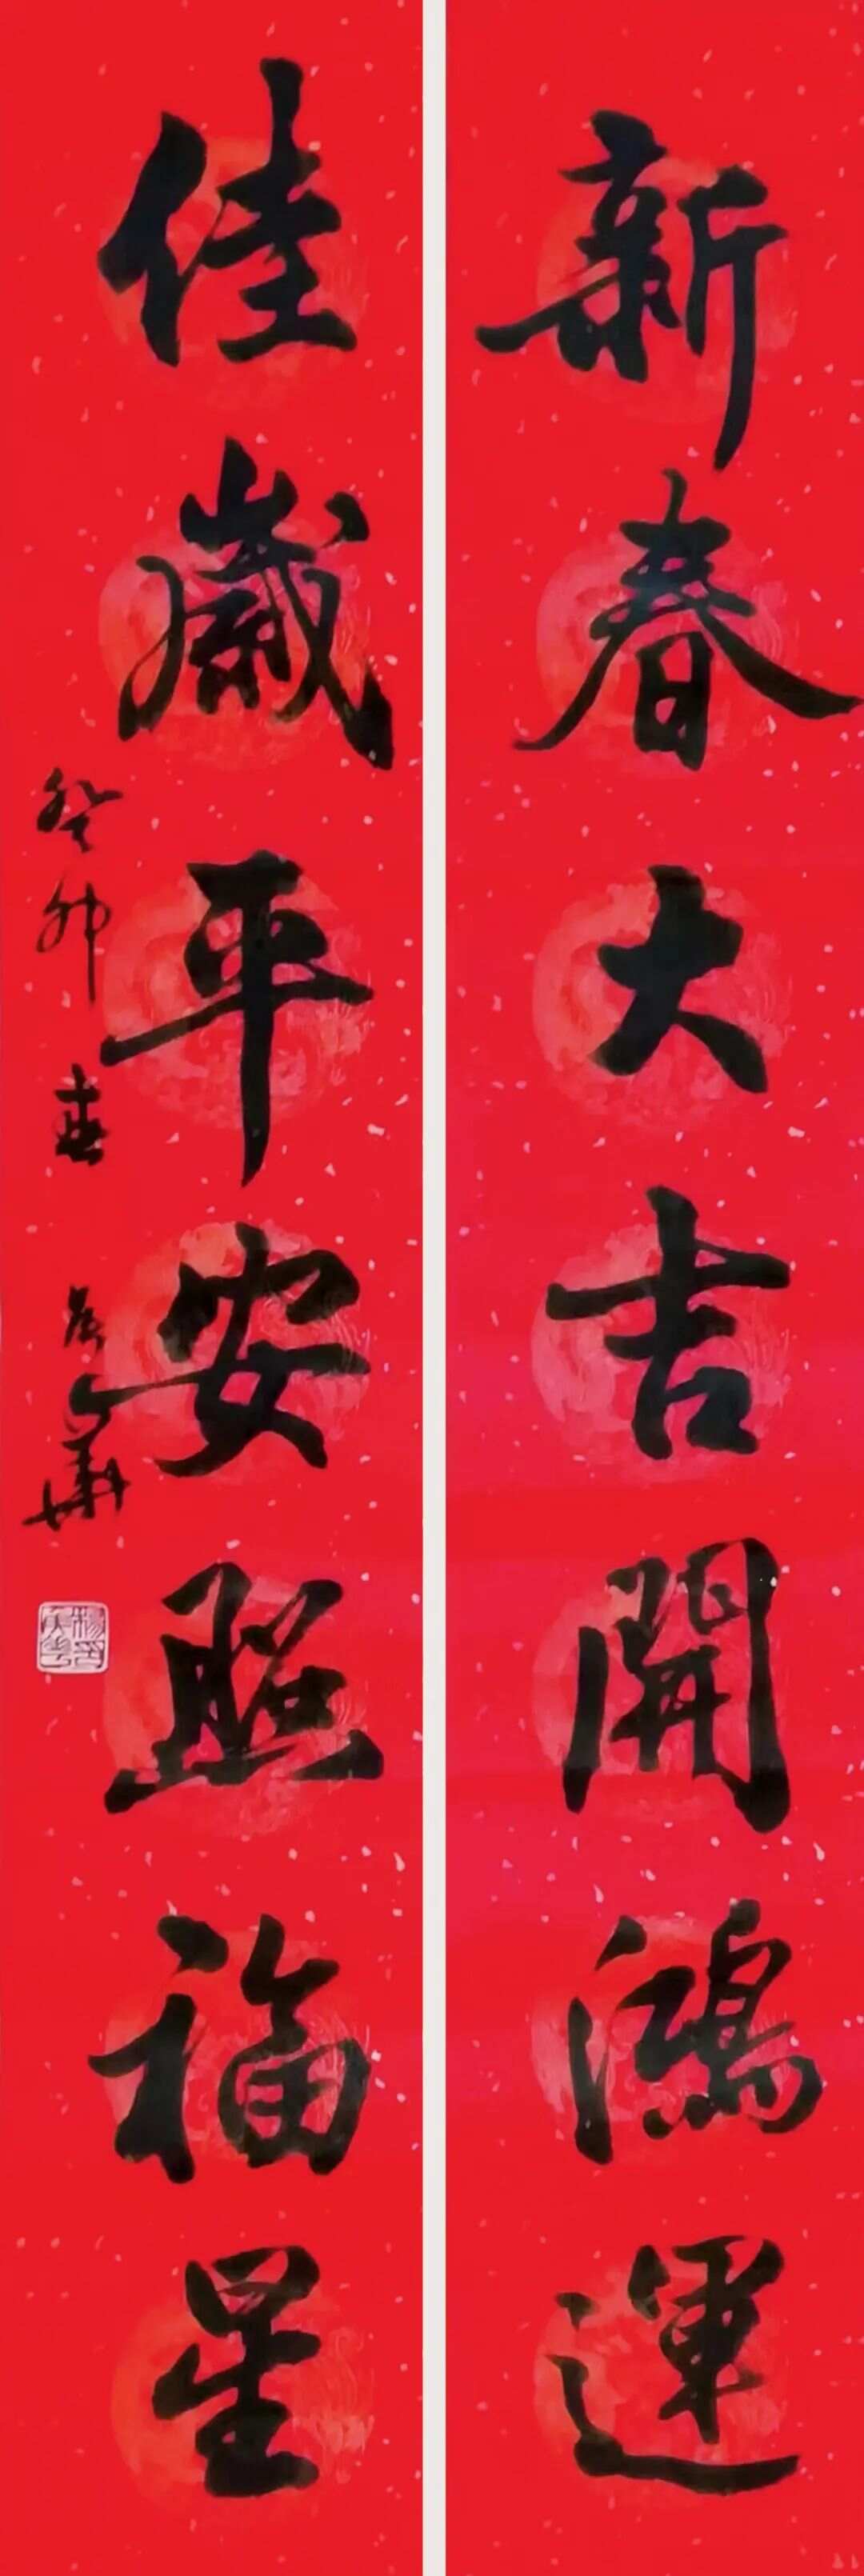 新春大吉開鴻運
佳歲平安照福星
癸卯春